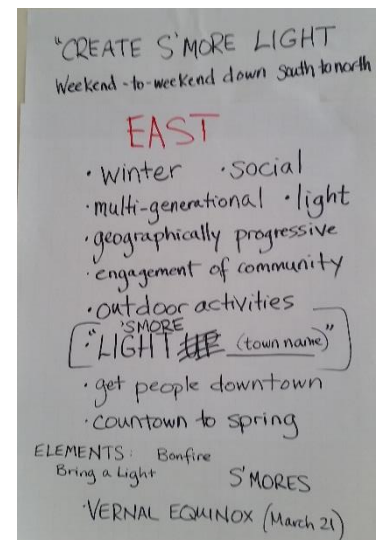 "CREATE S'MORE LIGHT
Weekend-to-weekend down south to north
EAST
· winter · social
· multi-generational · light
· geographically progressive
· engagement of community
· outdoor activities
'SMORE
· "LIGHT (town name)"
· get people downtown
· countown to spring
ELEMENTS: Bonfire
Bring a Light S'MORES
· VERNAL EQUINOX (March 21)